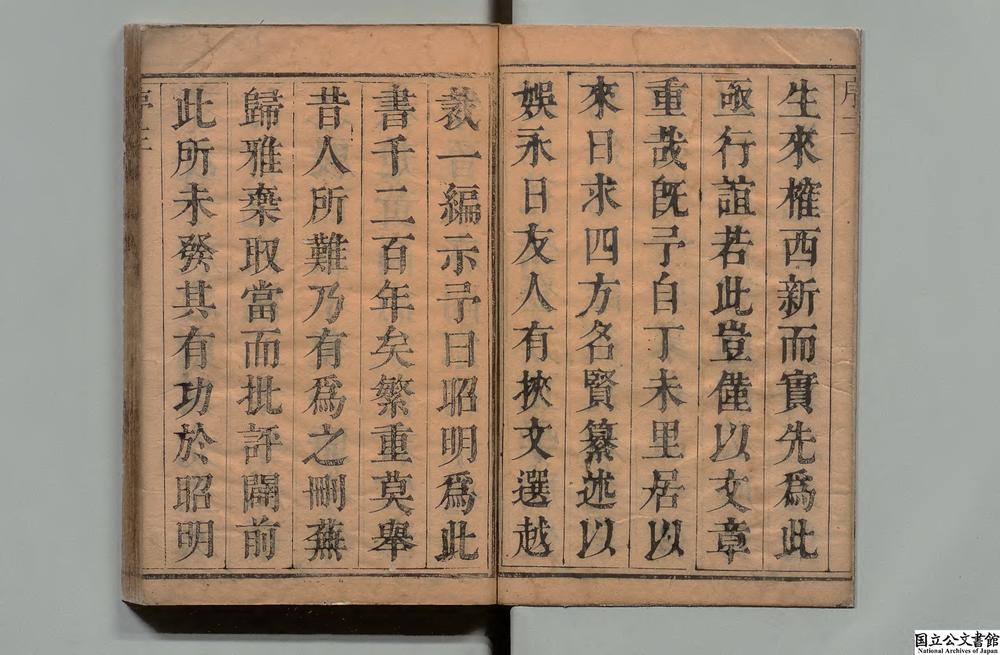 生來榷西新而實先爲此
亟行誼若此豈僅以文章
重哉旣予自丁未里居以
來日求四方名賢纂述以
娛永日友人有挾文選越
裁一編示予曰昭明爲此
書千二百年矣繁重莫舉
昔人所難乃有爲之刪蕪
歸雅棄取當而批評闢前
此所未發其有功於昭明
序
国立公文書館
National Archives of Japan